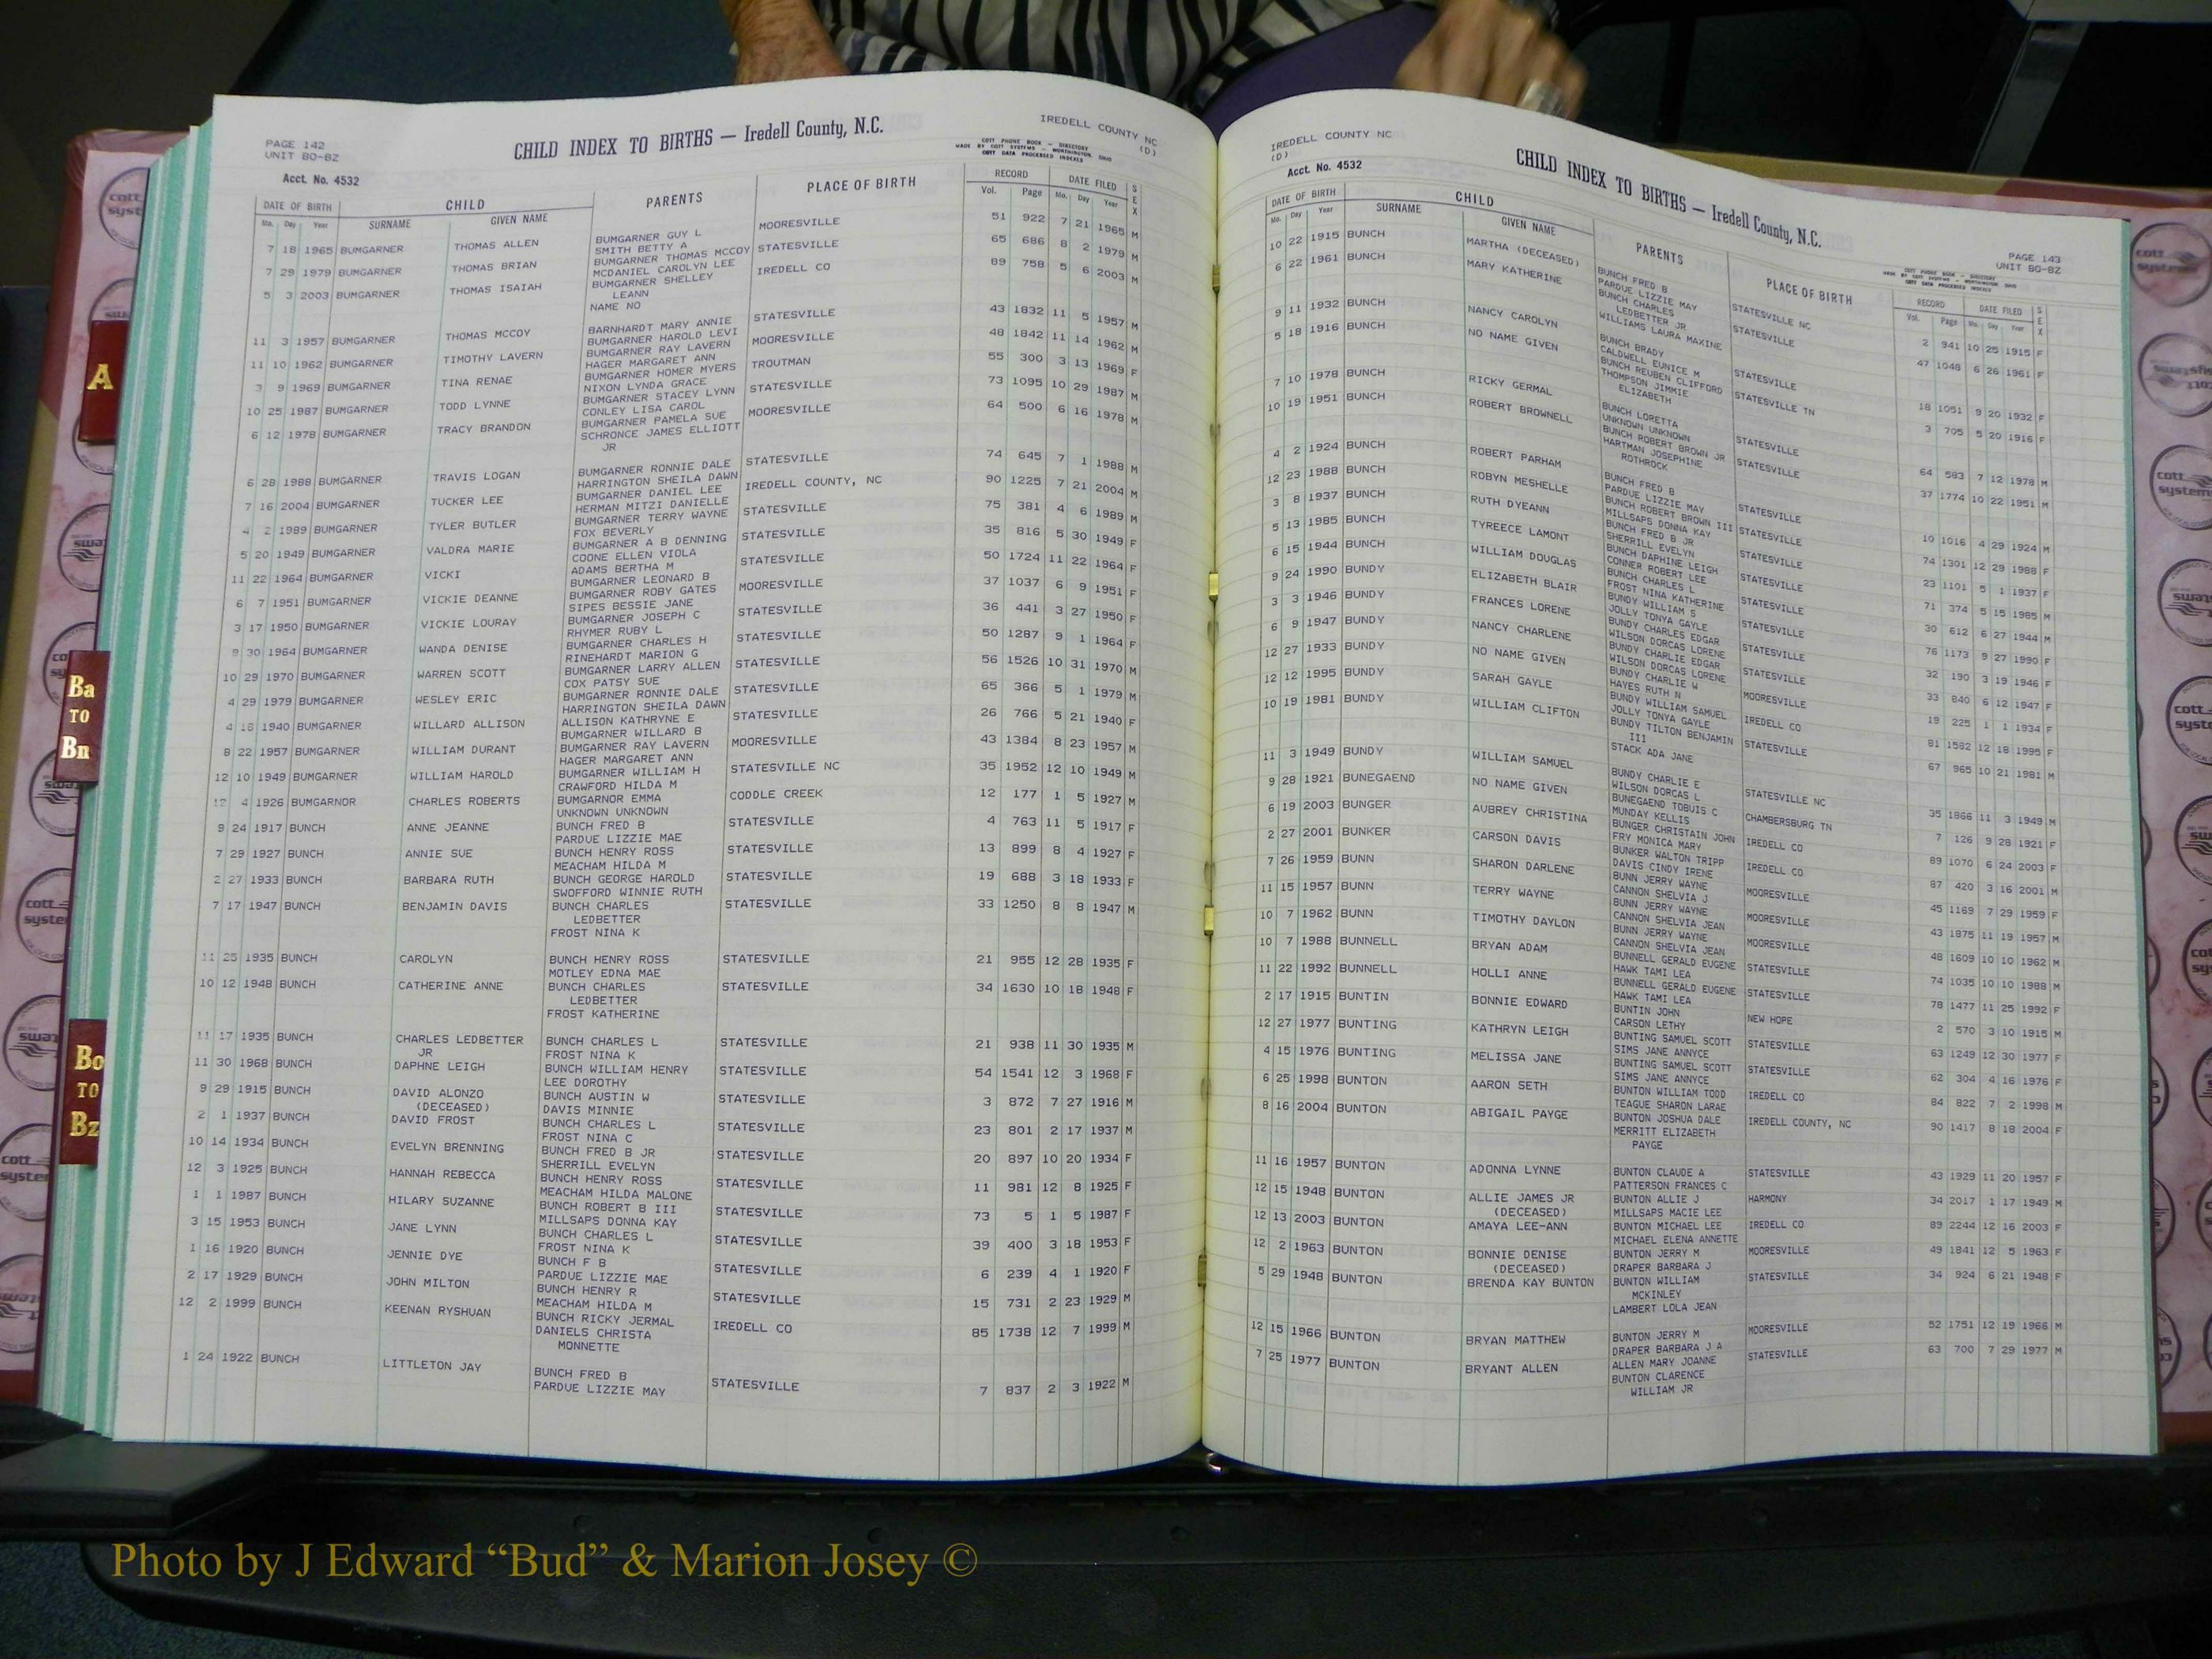 PAGE 142
UNIT BO-BZ
CHILD INDEX TO BIRTHS — Iredell County, N.C.
IREDELL COUNTY NC
(D)
COTT PHONE BOOK — DIRECTORY
MADE BY COTT SYSTEMS — WORTHINGTON, OHIO
COTT DATA PROCESSED INDEXES
Acct. No. 4532
DATE OF BIRTH CHILD PARENTS PLACE OF BIRTH RECORD DATE FILED SEX
Mo. Day Year SURNAME GIVEN NAME Vol. Page Mo. Day Year
7 18 1965 BUMGARNER THOMAS ALLEN BUMGARNER GUY L MOORESVILLE 51 922 7 21 1965 M
SMITH BETTY A
7 29 1979 BUMGARNER THOMAS BRIAN BUMGARNER THOMAS MCCOY STATESVILLE 65 686 8 2 1979 M
MCDANIEL CAROLYN LEE
5 3 2003 BUMGARNER THOMAS ISAIAH BUMGARNER SHELLEY IREDELL CO 89 758 5 6 2003 M
LEANN
NAME NO
11 3 1957 BUMGARNER THOMAS MCCOY BARNHARDT MARY ANNIE STATESVILLE 43 1832 11 5 1957 M
BUMGARNER HAROLD LEVI
11 10 1962 BUMGARNER TIMOTHY LAVERN BUMGARNER RAY LAVERN MOORESVILLE 48 1842 11 14 1962 M
HAGER MARGARET ANN
3 9 1969 BUMGARNER TINA RENAE BUMGARNER HOMER MYERS TROUTMAN 55 300 3 13 1969 F
NIXON LYNDA GRACE
10 25 1987 BUMGARNER TODD LYNNE BUMGARNER STACEY LYNN STATESVILLE 73 1095 10 29 1987 M
CONLEY LISA CAROL
6 12 1978 BUMGARNER TRACY BRANDON BUMGARNER PAMELA SUE MOORESVILLE 64 500 6 16 1978 M
SCHRONCE JAMES ELLIOTT
JR
6 28 1988 BUMGARNER TRAVIS LOGAN BUMGARNER RONNIE DALE STATESVILLE 74 645 7 1 1988 M
HARRINGTON SHEILA DAWN
7 16 2004 BUMGARNER TUCKER LEE BUMGARNER DANIEL LEE IREDELL COUNTY, NC 90 1225 7 21 2004 M
HERMAN MITZI DANIELLE
4 2 1989 BUMGARNER TYLER BUTLER BUMGARNER TERRY WAYNE STATESVILLE 75 381 4 6 1989 M
FOX BEVERLY
5 20 1949 BUMGARNER VALDRA MARIE BUMGARNER A B DENNING STATESVILLE 35 816 5 30 1949 F
COONE ELLEN VIOLA
11 22 1964 BUMGARNER VICKI ADAMS BERTHA M STATESVILLE 50 1724 11 22 1964 F
BUMGARNER LEONARD B
6 7 1951 BUMGARNER VICKIE DEANNE BUMGARNER ROBY GATES MOORESVILLE 37 1037 6 9 1951 F
SIPES BESSIE JANE
3 17 1950 BUMGARNER VICKIE LOURAY BUMGARNER JOSEPH C STATESVILLE 36 441 3 27 1950 F
RHYMER RUBY L
8 30 1964 BUMGARNER WANDA DENISE BUMGARNER CHARLES H STATESVILLE 50 1287 9 1 1964 F
RINEHARDT MARION G
10 29 1970 BUMGARNER WARREN SCOTT BUMGARNER LARRY ALLEN STATESVILLE 56 1526 10 31 1970 M
COX PATSY SUE
4 29 1979 BUMGARNER WESLEY ERIC BUMGARNER RONNIE DALE STATESVILLE 65 366 5 1 1979 M
HARRINGTON SHEILA DAWN
4 18 1940 BUMGARNER WILLARD ALLISON ALLISON KATHRYNE E STATESVILLE 26 766 5 21 1940 F
BUMGARNER WILLARD B
8 22 1957 BUMGARNER WILLIAM DURANT BUMGARNER RAY LAVERN MOORESVILLE 43 1384 8 23 1957 M
HAGER MARGARET ANN
12 10 1949 BUMGARNER WILLIAM HAROLD BUMGARNER WILLIAM H STATESVILLE NC 35 1952 12 10 1949 M
CRAWFORD HILDA M
12 4 1926 BUMGARNOR CHARLES ROBERTS BUMGARNOR EMMA CODDLE CREEK 12 177 1 5 1927 M
UNKNOWN UNKNOWN
9 24 1917 BUNCH ANNE JEANNE BUNCH FRED B STATESVILLE 4 763 11 5 1917 F
PARDUE LIZZIE MAE
7 29 1927 BUNCH ANNIE SUE BUNCH HENRY ROSS STATESVILLE 13 899 8 4 1927 F
MEACHAM HILDA M
2 27 1933 BUNCH BARBARA RUTH BUNCH GEORGE HAROLD STATESVILLE 19 688 3 18 1933 F
SWOFFORD WINNIE RUTH
7 17 1947 BUNCH BENJAMIN DAVIS BUNCH CHARLES STATESVILLE 33 1250 8 8 1947 M
LEDBETTER
FROST NINA K
11 25 1935 BUNCH CAROLYN BUNCH HENRY ROSS STATESVILLE 21 955 12 28 1935 F
MOTLEY EDNA MAE
10 12 1948 BUNCH CATHERINE ANNE BUNCH CHARLES STATESVILLE 34 1630 10 18 1948 F
LEDBETTER
FROST KATHERINE
11 17 1935 BUNCH CHARLES LEDBETTER BUNCH CHARLES L STATESVILLE 21 938 11 30 1935 M
JR FROST NINA K
11 30 1968 BUNCH DAPHNE LEIGH BUNCH WILLIAM HENRY STATESVILLE 54 1541 12 3 1968 F
LEE DOROTHY
9 29 1915 BUNCH DAVID ALONZO BUNCH AUSTIN W STATESVILLE 3 872 7 27 1916 M
(DECEASED) DAVIS MINNIE
2 1 1937 BUNCH DAVID FROST BUNCH CHARLES L STATESVILLE 23 801 2 17 1937 M
FROST NINA C
10 14 1934 BUNCH EVELYN BRENNING BUNCH FRED B JR STATESVILLE 20 897 10 20 1934 F
SHERRILL EVELYN
12 3 1925 BUNCH HANNAH REBECCA BUNCH HENRY ROSS STATESVILLE 11 981 12 8 1925 F
MEACHAM HILDA MALONE
1 1 1987 BUNCH HILARY SUZANNE BUNCH ROBERT B III STATESVILLE 73 5 1 5 1987 F
MILLSAPS DONNA KAY
3 15 1953 BUNCH JANE LYNN BUNCH CHARLES L STATESVILLE 39 400 3 18 1953 F
FROST NINA K
1 16 1920 BUNCH JENNIE DYE BUNCH F B STATESVILLE 6 239 4 1 1920 F
PARDUE LIZZIE MAE
2 17 1929 BUNCH JOHN MILTON BUNCH HENRY R STATESVILLE 15 731 2 23 1929 M
MEACHAM HILDA M
12 2 1999 BUNCH KEENAN RYSHUAN BUNCH RICKY JERMAL IREDELL CO 85 1738 12 7 1999 M
DANIELS CHRISTA
MONNETTE
1 24 1922 BUNCH LITTLETON JAY BUNCH FRED B STATESVILLE 7 837 2 3 1922 M
PARDUE LIZZIE MAY
IREDELL COUNTY NC
(D)
Acct. No. 4532
CHILD INDEX TO BIRTHS — Iredell County, N.C.
PAGE 143
UNIT BO-BZ
DATE OF BIRTH CHILD PARENTS PLACE OF BIRTH RECORD DATE FILED SEX
Mo. Day Year SURNAME GIVEN NAME Vol. Page Mo. Day Year
10 22 1915 BUNCH MARTHA (DECEASED) BUNCH FRED B STATESVILLE NC 2 941 10 25 1915 F
PARDUE LIZZIE MAY
6 22 1961 BUNCH MARY KATHERINE BUNCH CHARLES STATESVILLE 47 1048 6 26 1961 F
LEDBETTER JR
WILLIAMS LAURA MAXINE
9 11 1932 BUNCH NANCY CAROLYN BUNCH BRADY STATESVILLE 18 1051 9 20 1932 F
CALDWELL EUNICE M
5 18 1916 BUNCH NO NAME GIVEN BUNCH REUBEN CLIFFORD STATESVILLE TN 3 705 5 20 1916 F
THOMPSON JIMMIE
ELIZABETH
7 10 1978 BUNCH RICKY GERMAL BUNCH LORETTA STATESVILLE 64 583 7 12 1978 M
UNKNOWN UNKNOWN
10 19 1951 BUNCH ROBERT BROWNELL BUNCH ROBERT BROWN JR STATESVILLE 37 1774 10 22 1951 M
HARTMAN JOSEPHINE
ROTHROCK
4 2 1924 BUNCH ROBERT PARHAM BUNCH FRED B STATESVILLE 10 1016 4 29 1924 M
PARDUE LIZZIE MAY
12 23 1988 BUNCH ROBYN MESHELLE BUNCH ROBERT BROWN III STATESVILLE 74 1301 12 29 1988 F
MILLSAPS DONNA KAY
3 8 1937 BUNCH RUTH DYEANN BUNCH FRED B JR STATESVILLE 23 1101 5 1 1937 F
SHERRILL EVELYN
5 13 1985 BUNCH TYREECE LAMONT BUNCH DAPHINE LEIGH STATESVILLE 71 374 5 15 1985 M
CONNER ROBERT LEE
6 15 1944 BUNCH WILLIAM DOUGLAS BUNCH CHARLES L STATESVILLE 30 612 6 27 1944 M
FROST NINA KATHERINE
9 24 1990 BUNDY ELIZABETH BLAIR BUNDY WILLIAM S STATESVILLE 76 1173 9 27 1990 F
JOLLY TONYA GAYLE
3 3 1946 BUNDY FRANCES LORENE BUNDY CHARLES EDGAR STATESVILLE 32 190 3 19 1946 F
WILSON DORCAS LORENE
6 9 1947 BUNDY NANCY CHARLENE BUNDY CHARLIE EDGAR STATESVILLE 33 840 6 12 1947 F
WILSON DORCAS LORENE
12 27 1933 BUNDY NO NAME GIVEN BUNDY CHARLIE W MOORESVILLE 19 225 1 1 1934 F
HAYES RUTH N
12 12 1995 BUNDY SARAH GAYLE BUNDY WILLIAM SAMUEL IREDELL CO 81 1582 12 18 1995 F
JOLLY TONYA GAYLE
10 19 1981 BUNDY WILLIAM CLIFTON BUNDY TILTON BENJAMIN STATESVILLE 67 965 10 21 1981 M
III
STACK ADA JANE
11 3 1949 BUNDY WILLIAM SAMUEL BUNDY CHARLIE E STATESVILLE NC 35 1866 11 3 1949 M
WILSON DORCAS L
9 28 1921 BUNEGAEND NO NAME GIVEN BUNEGAEND TOBUIS C CHAMBERSBURG TN 7 126 9 28 1921 F
MUNDAY KELLIS
6 19 2003 BUNGER AUBREY CHRISTINA BUNGER CHRISTAIN JOHN IREDELL CO 89 1070 6 24 2003 F
FRY MONICA MARY
2 27 2001 BUNKER CARSON DAVIS BUNKER WALTON TRIPP IREDELL CO 87 420 3 16 2001 M
DAVIS CINDY IRENE
7 26 1959 BUNN SHARON DARLENE BUNN JERRY WAYNE MOORESVILLE 45 1169 7 29 1959 F
CANNON SHELVIA J
11 15 1957 BUNN TERRY WAYNE BUNN JERRY WAYNE MOORESVILLE 43 1875 11 19 1957 M
CANNON SHELVIA JEAN
10 7 1962 BUNN TIMOTHY DAYLON BUNN JERRY WAYNE MOORESVILLE 48 1609 10 10 1962 M
CANNON SHELVIA JEAN
10 7 1988 BUNNELL BRYAN ADAM BUNNELL GERALD EUGENE STATESVILLE 74 1035 10 10 1988 M
HAWK TAMI LEA
11 22 1992 BUNNELL HOLLI ANNE BUNNELL GERALD EUGENE STATESVILLE 78 1477 11 25 1992 F
HAWK TAMI LEA
2 17 1915 BUNTIN BONNIE EDWARD BUNTIN JOHN NEW HOPE 2 570 3 10 1915 M
CARSON LETHY
12 27 1977 BUNTING KATHRYN LEIGH BUNTING SAMUEL SCOTT STATESVILLE 63 1249 12 30 1977 F
SIMS JANE ANNYCE
4 15 1976 BUNTING MELISSA JANE BUNTING SAMUEL SCOTT STATESVILLE 62 304 4 16 1976 F
SIMS JANE ANNYCE
6 25 1998 BUNTON AARON SETH BUNTON WILLIAM TODD IREDELL CO 84 822 7 2 1998 M
TEAGUE SHARON LARAE
8 16 2004 BUNTON ABIGAIL PAYGE BUNTON JOSHUA DALE IREDELL COUNTY, NC 90 1417 8 18 2004 F
MERRITT ELIZABETH
PAYGE
11 16 1957 BUNTON ADONNA LYNNE BUNTON CLAUDE A STATESVILLE 43 1929 11 20 1957 F
PATTERSON FRANCES C
12 15 1948 BUNTON ALLIE JAMES JR BUNTON ALLIE J HARMONY 34 2017 1 17 1949 M
(DECEASED) MILLSAPS MACIE LEE
12 13 2003 BUNTON AMAYA LEE-ANN BUNTON MICHAEL LEE IREDELL CO 89 2244 12 16 2003 F
MICHAEL ELENA ANNETTE
12 2 1963 BUNTON BONNIE DENISE BUNTON JERRY M MOORESVILLE 49 1841 12 5 1963 F
(DECEASED) DRAPER BARBARA J
5 29 1948 BUNTON BRENDA KAY BUNTON BUNTON WILLIAM STATESVILLE 34 924 6 21 1948 F
MCKINLEY
LAMBERT LOLA JEAN
12 15 1966 BUNTON BRYAN MATTHEW BUNTON JERRY M MOORESVILLE 52 1751 12 19 1966 M
DRAPER BARBARA J A
7 25 1977 BUNTON BRYANT ALLEN ALLEN MARY JOANNE STATESVILLE 63 700 7 29 1977 M
BUNTON CLARENCE
WILLIAM JR
A
Ba
TO
Bn
Bo
TO
Bz
Photo by J Edward “Bud” & Marion Josey ©